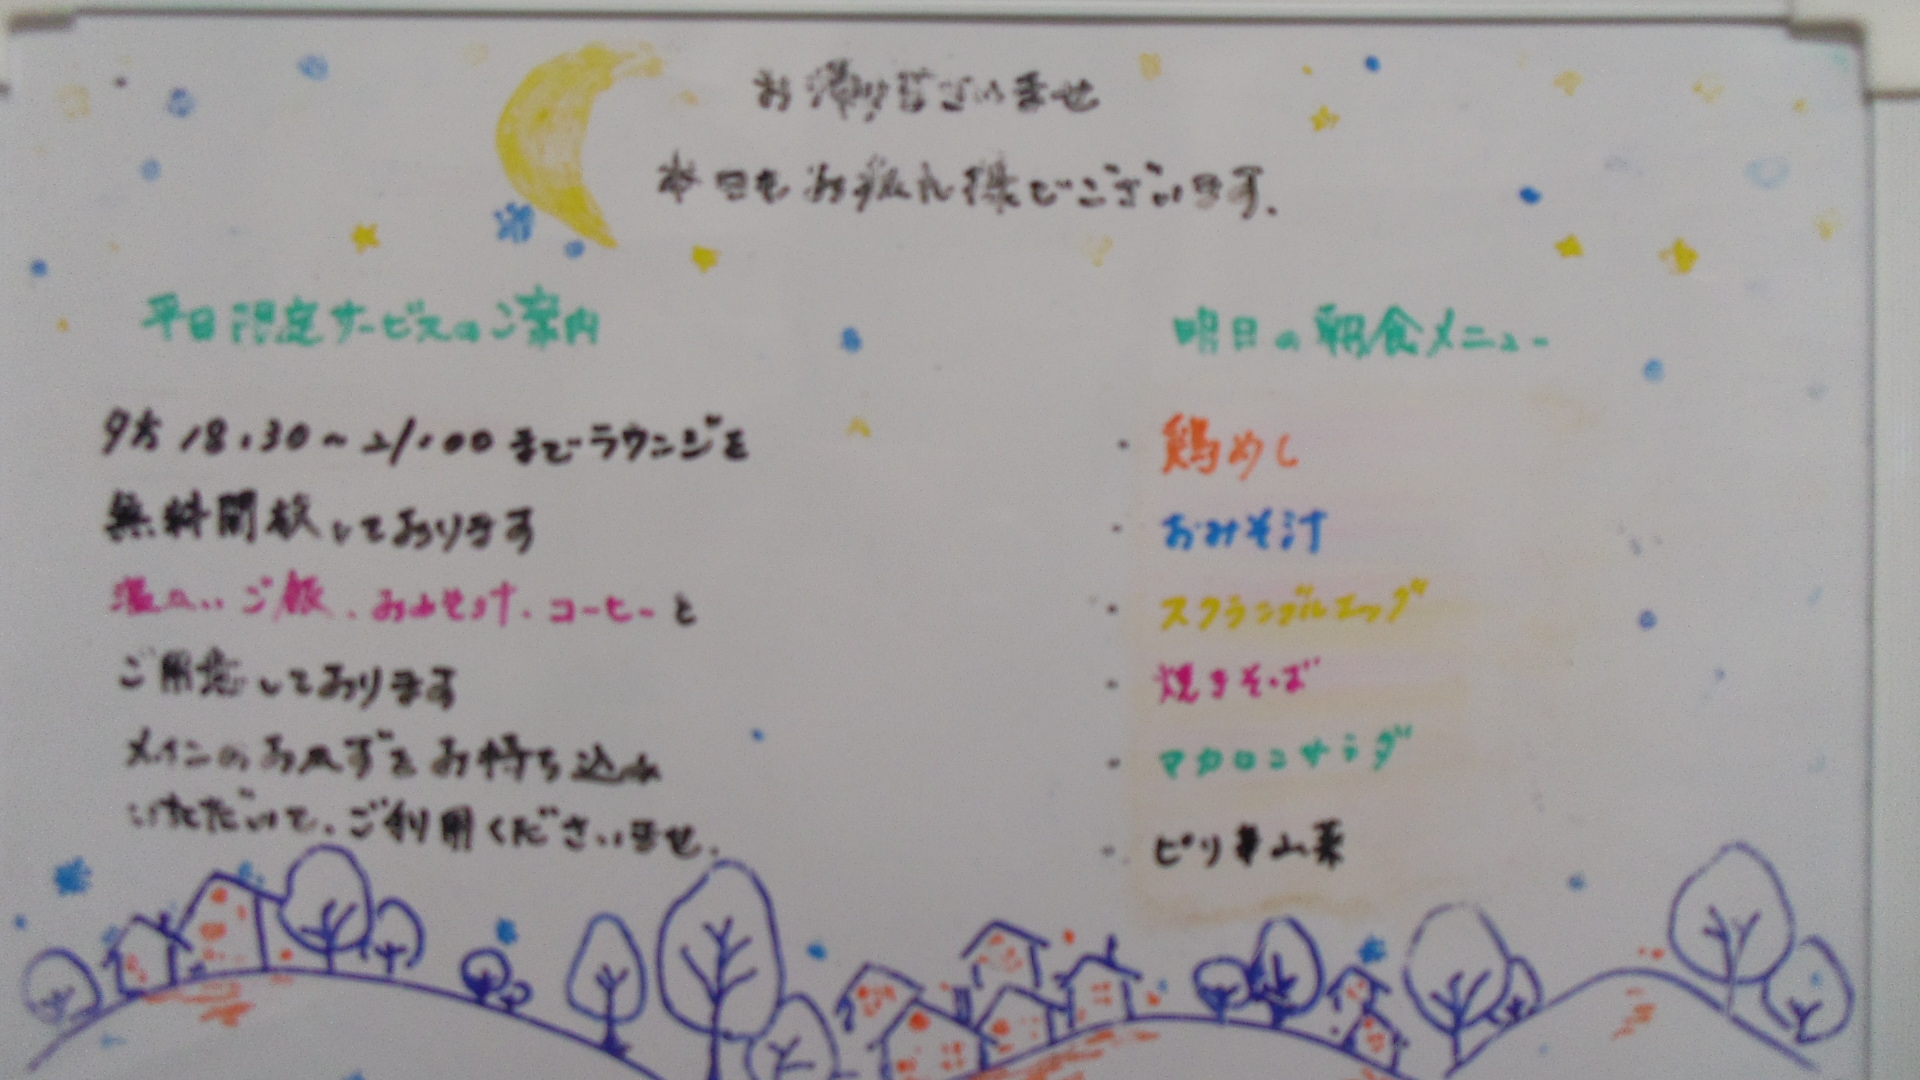 お帰りなさいませ
本日もお疲れ様でございます.
平日限定サービスのご案内
夕方 18:30〜21:00 までラウンジを
無料開放しております
温かいご飯、おみそ汁、コーヒーと
ご用意しております
メインのおかずをお持ち込み
いただいて、ご利用くださいませ.
明日の朝食メニュー
・鶏めし
・おみそ汁
・スクランブルエッグ
・焼きそば
・マカロニサラダ
・ピリ辛山菜